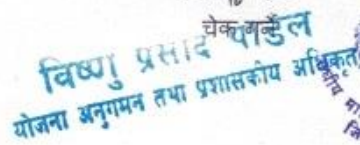 चेक गर्ने
विष्णु प्रसाद पौडेल
योजना अनुगमन तथा प्रशासकीय अधिकृत